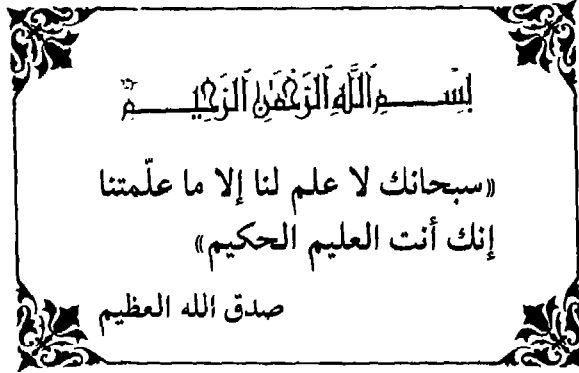 بِسْمِ اللَّهِ الرَّحْمَٰنِ الرَّحِيمِ
«سبحانك لا علم لنا إلا ما علّمتنا
إنك أنت العليم الحكيم»
صدق الله العظيم